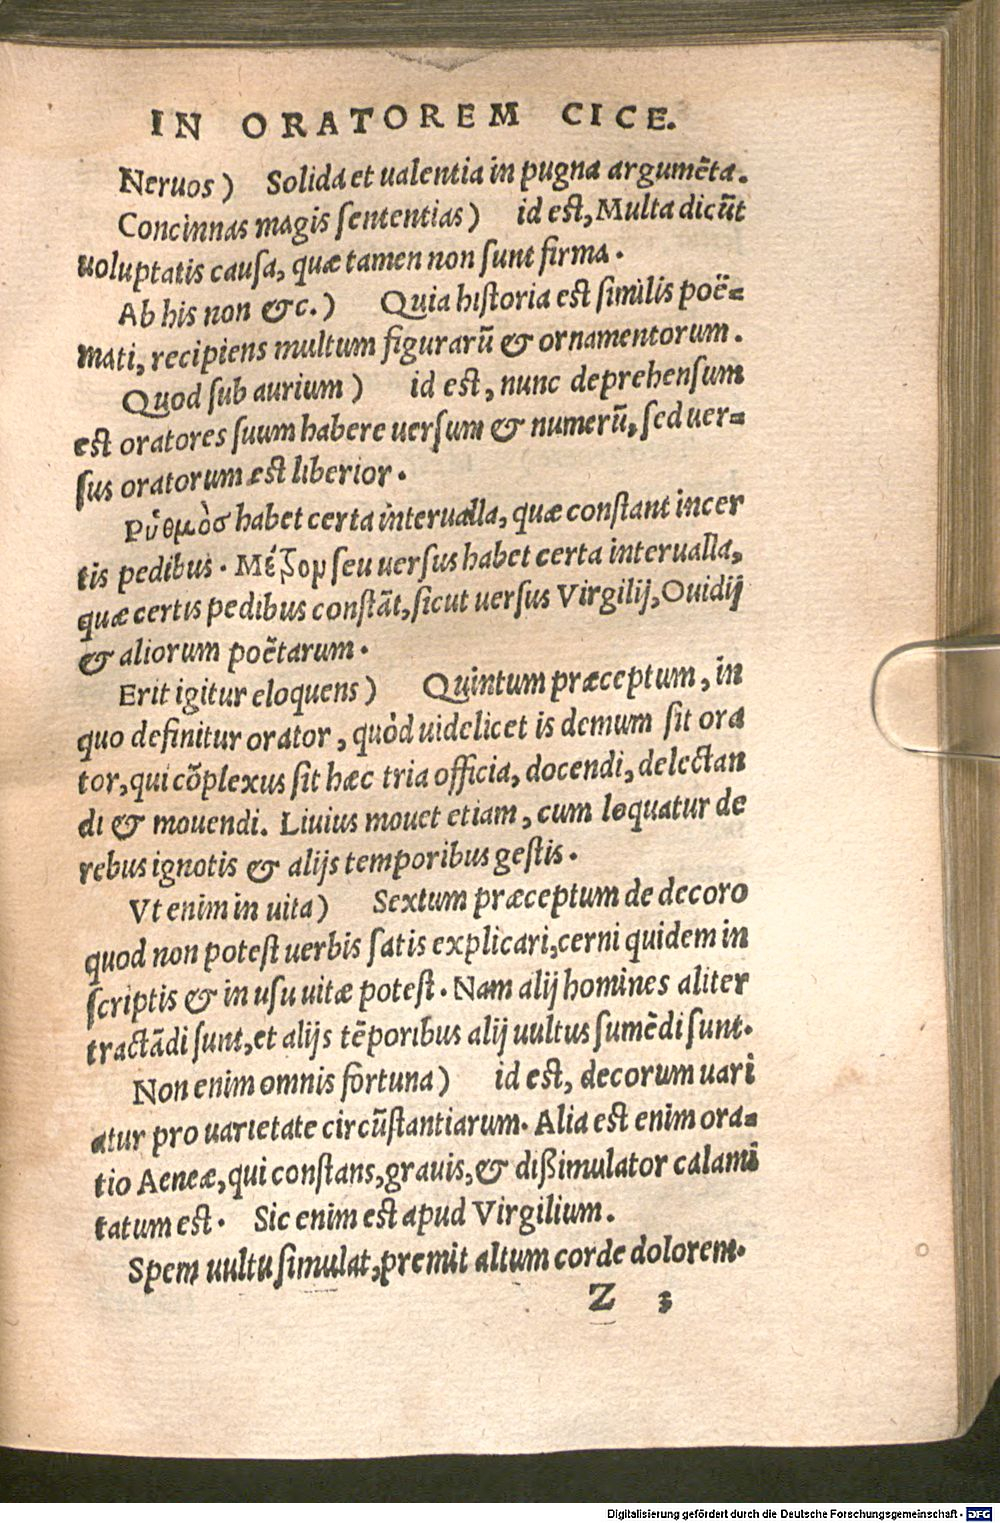 IN ORATOREM CICE.
Neruos) Solida et ualentia in pugna argumēta.
Concinnas magis ſententias) id eſt, Multa dicūt
uoluptatis cauſa, quæ tamen non ſunt firma.
Ab his non &c.) Quia hiſtoria eſt ſimilis poë=
mati, recipiens multum figurarū & ornamentorum.
Quod ſub aurium) id eſt, nunc deprehenſum
eſt oratores ſuum habere uerſum & numerū, ſed uer=
ſus oratorum eſt liberior.
Ρὑθμὸσ habet certa interualla, quæ conſtant incer
tis pedibus. Μέτρον ſeu uerſus habet certa interualla,
quæ certis pedibus conſtāt, ſicut uerſus Virgilij, Ouidij
& aliorum poëtarum.
Erit igitur eloquens) Quintum præceptum, in
quo definitur orator, quòd uidelicet is demum ſit ora
tor, qui cōplexus ſit hæc tria officia, docendi, delectan
di & mouendi. Liuius mouet etiam, cum loquatur de
rebus ignotis & alijs temporibus geſtis.
Vt enim in uita) Sextum præceptum de decoro
quod non poteſt uerbis ſatis explicari, cerni quidem in
ſcriptis & in uſu uitæ poteſt. Nam alij homines aliter
tractādi ſunt, et alijs tēporibus alij uultus ſumēdi ſunt.
Non enim omnis fortuna) id eſt, decorum uari
atur pro uarietate circūſtantiarum. Alia eſt enim ora=
tio Aeneæ, qui conſtans, grauis, & dißimulator calami
tatum eſt. Sic enim eſt apud Virgilium.
Spem uultu ſimulat, premit altum corde dolorem.
Z 3
Digitalisierung gefördert durch die Deutsche Forschungsgemeinschaft - DFG